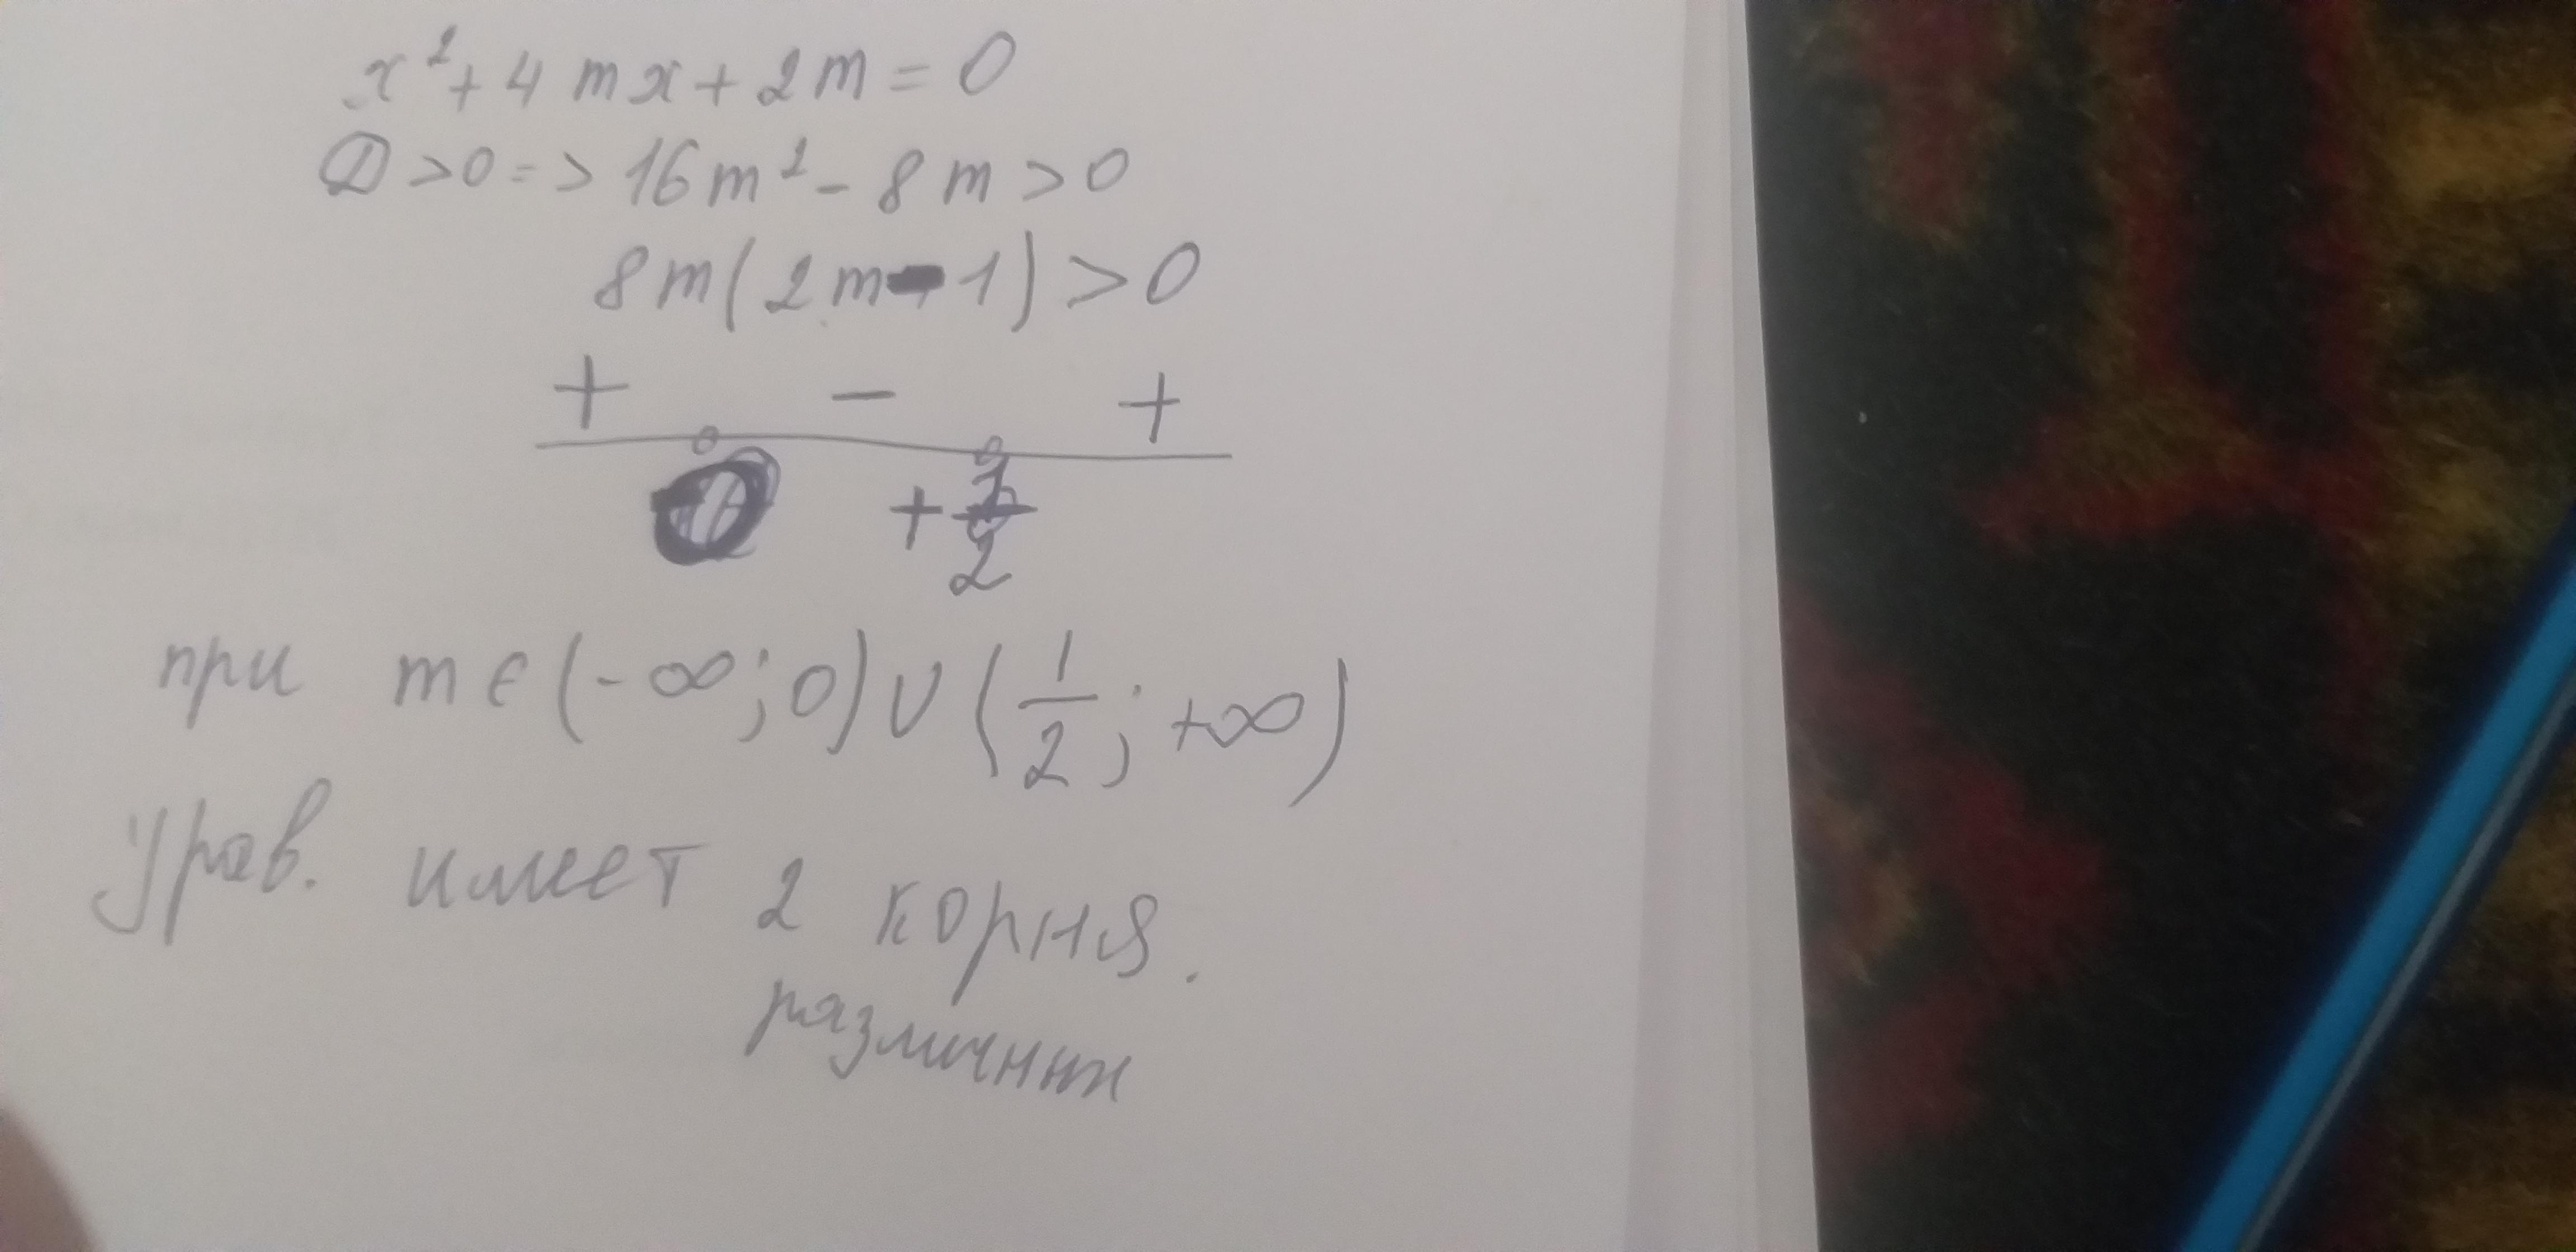 x² + 4mx + 2m = 0
D > 0 => 16m² - 8m > 0
8m(2m - 1) > 0
+ - +
0 +1/2
при m ∈ (-∞; 0) ∪ (1/2; +∞)
Урав. имеет 2 корня.
различных